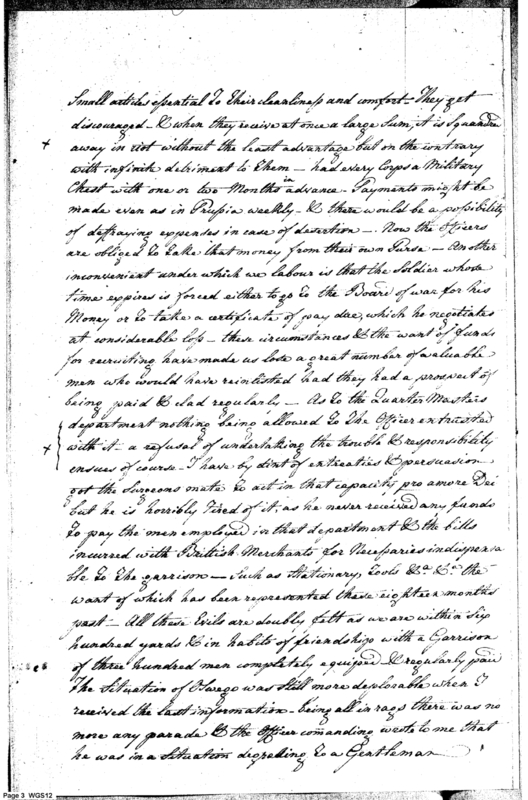 Small articles essential to their cleanliness and comfort — They get
discouraged — & when they receive at once a large Sum, it is Squandred
away in riot without the least advantage but on the contrary
with infinite detriment to Them — had every Corps a Military
Chest with one or two Months in advance — Payments might be
made even as in Prussia weekly — & there would be a possibility
of defraying expenses in case of desertion — Now the Officers
are obliged to take that money from their own Purse — Another
inconvenient under which we labour is that the Soldier whose
time expires is forced either to go to the Board of war for his
Money or to take a certificate of pay due, which he negotiates
at considerable loss — these circumstances & the want of funds
for recruiting have made us lose a great number of valuable
men who would have reinlisted had they had a prospect of
being paid & clad regularly — As to the Quarter Masters
department nothing being allowed to The Officer entrusted
with it — a refusal of undertaking the trouble & responsibility
ensues of course — I have by dint of entreaties & persuasion
got the Surgeons mate to act in that capacity pro amore Dei
but he is horribly tired of it, as he never received any funds
to pay the men employed in that department & the bills
incurred with British Merchants for Necessaries indispensa
ble to The garrison — Such as Stationary, Tools &a &a the
want of which has been represented these eighteen months
past — All these Evils are doubly felt as we are within Six
hundred yards & in habits of friendship with a Garrison
of three hundred men completely equiped & regularly paid
The Situation of Oswego was Still more deplorable when I
received the last information — being all in rags there was no
more any parade & the Officer comanding wrote to me that
he was in a Situation degrading to a Gentleman
Page 3 WGS12